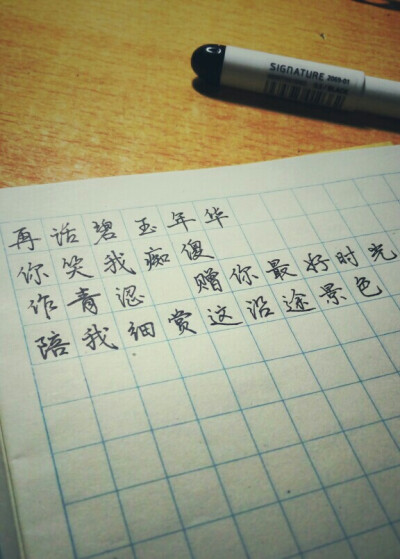 SIGNATURE 2009-01
再话碧玉年华
你笑我痴傻
作青涩 赠你最好时光
陪我细赏这沿途景色